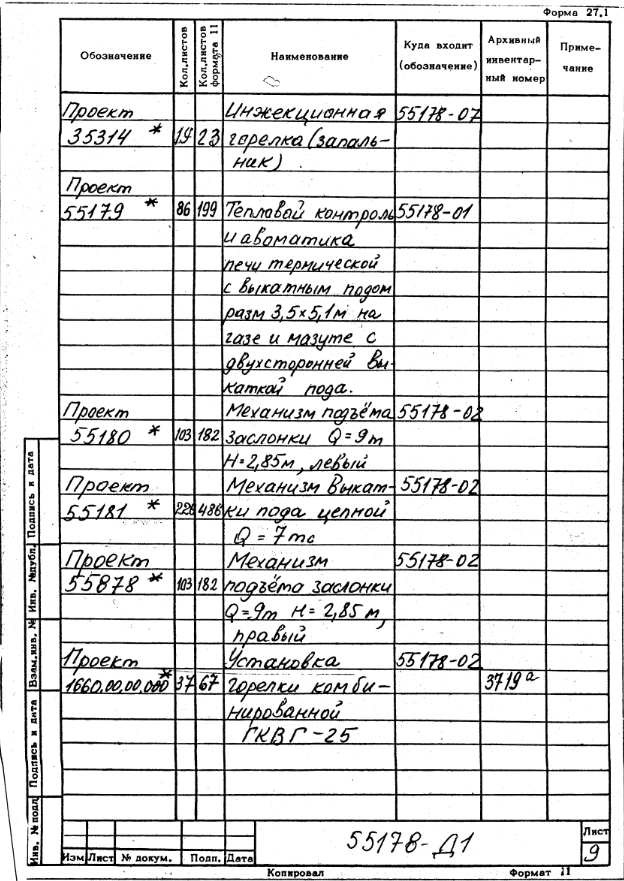 Форма 27.1
Обозначение Кол.листов Кол.листов формата 11 Наименование Куда входит (обозначение) Архивный инвентарный номер Примечание
Проект Инжекционная 55178-07
35314 * 19 23 горелка (запаль-
ник)
Проект
55179 * 86 199 Тепловой контроль 55178-01
и авоматика
печи термической
с выкатным подом
разм 3,5×5,1м на
газе и мазуте с
двухсторонней вы-
каткой пода.
Проект Механизм подъёма 55178-02
55180 * 103 182 заслонки Q=9т
H=2,85м, левый
Проект Механизм выкат- 55178-02
55181 * 226 486 ки пода цепной
Q = 7тс
Проект Механизм 55178-02
55878 * 103 182 подъёма заслонки
Q=9т H= 2,85 м,
правый
Проект Установка 55178-02
1660.00.00.000 * 37 67 горелки комби- 3719а
нированной
ГКВГ-25
Подпись и дата
Инв. №дубл.
Взам.инв. №
Подпись и дата
Инв. №подл
55178-Д1
Лист
9
Изм Лист № докум. Подп. Дата
Копировал Формат 11